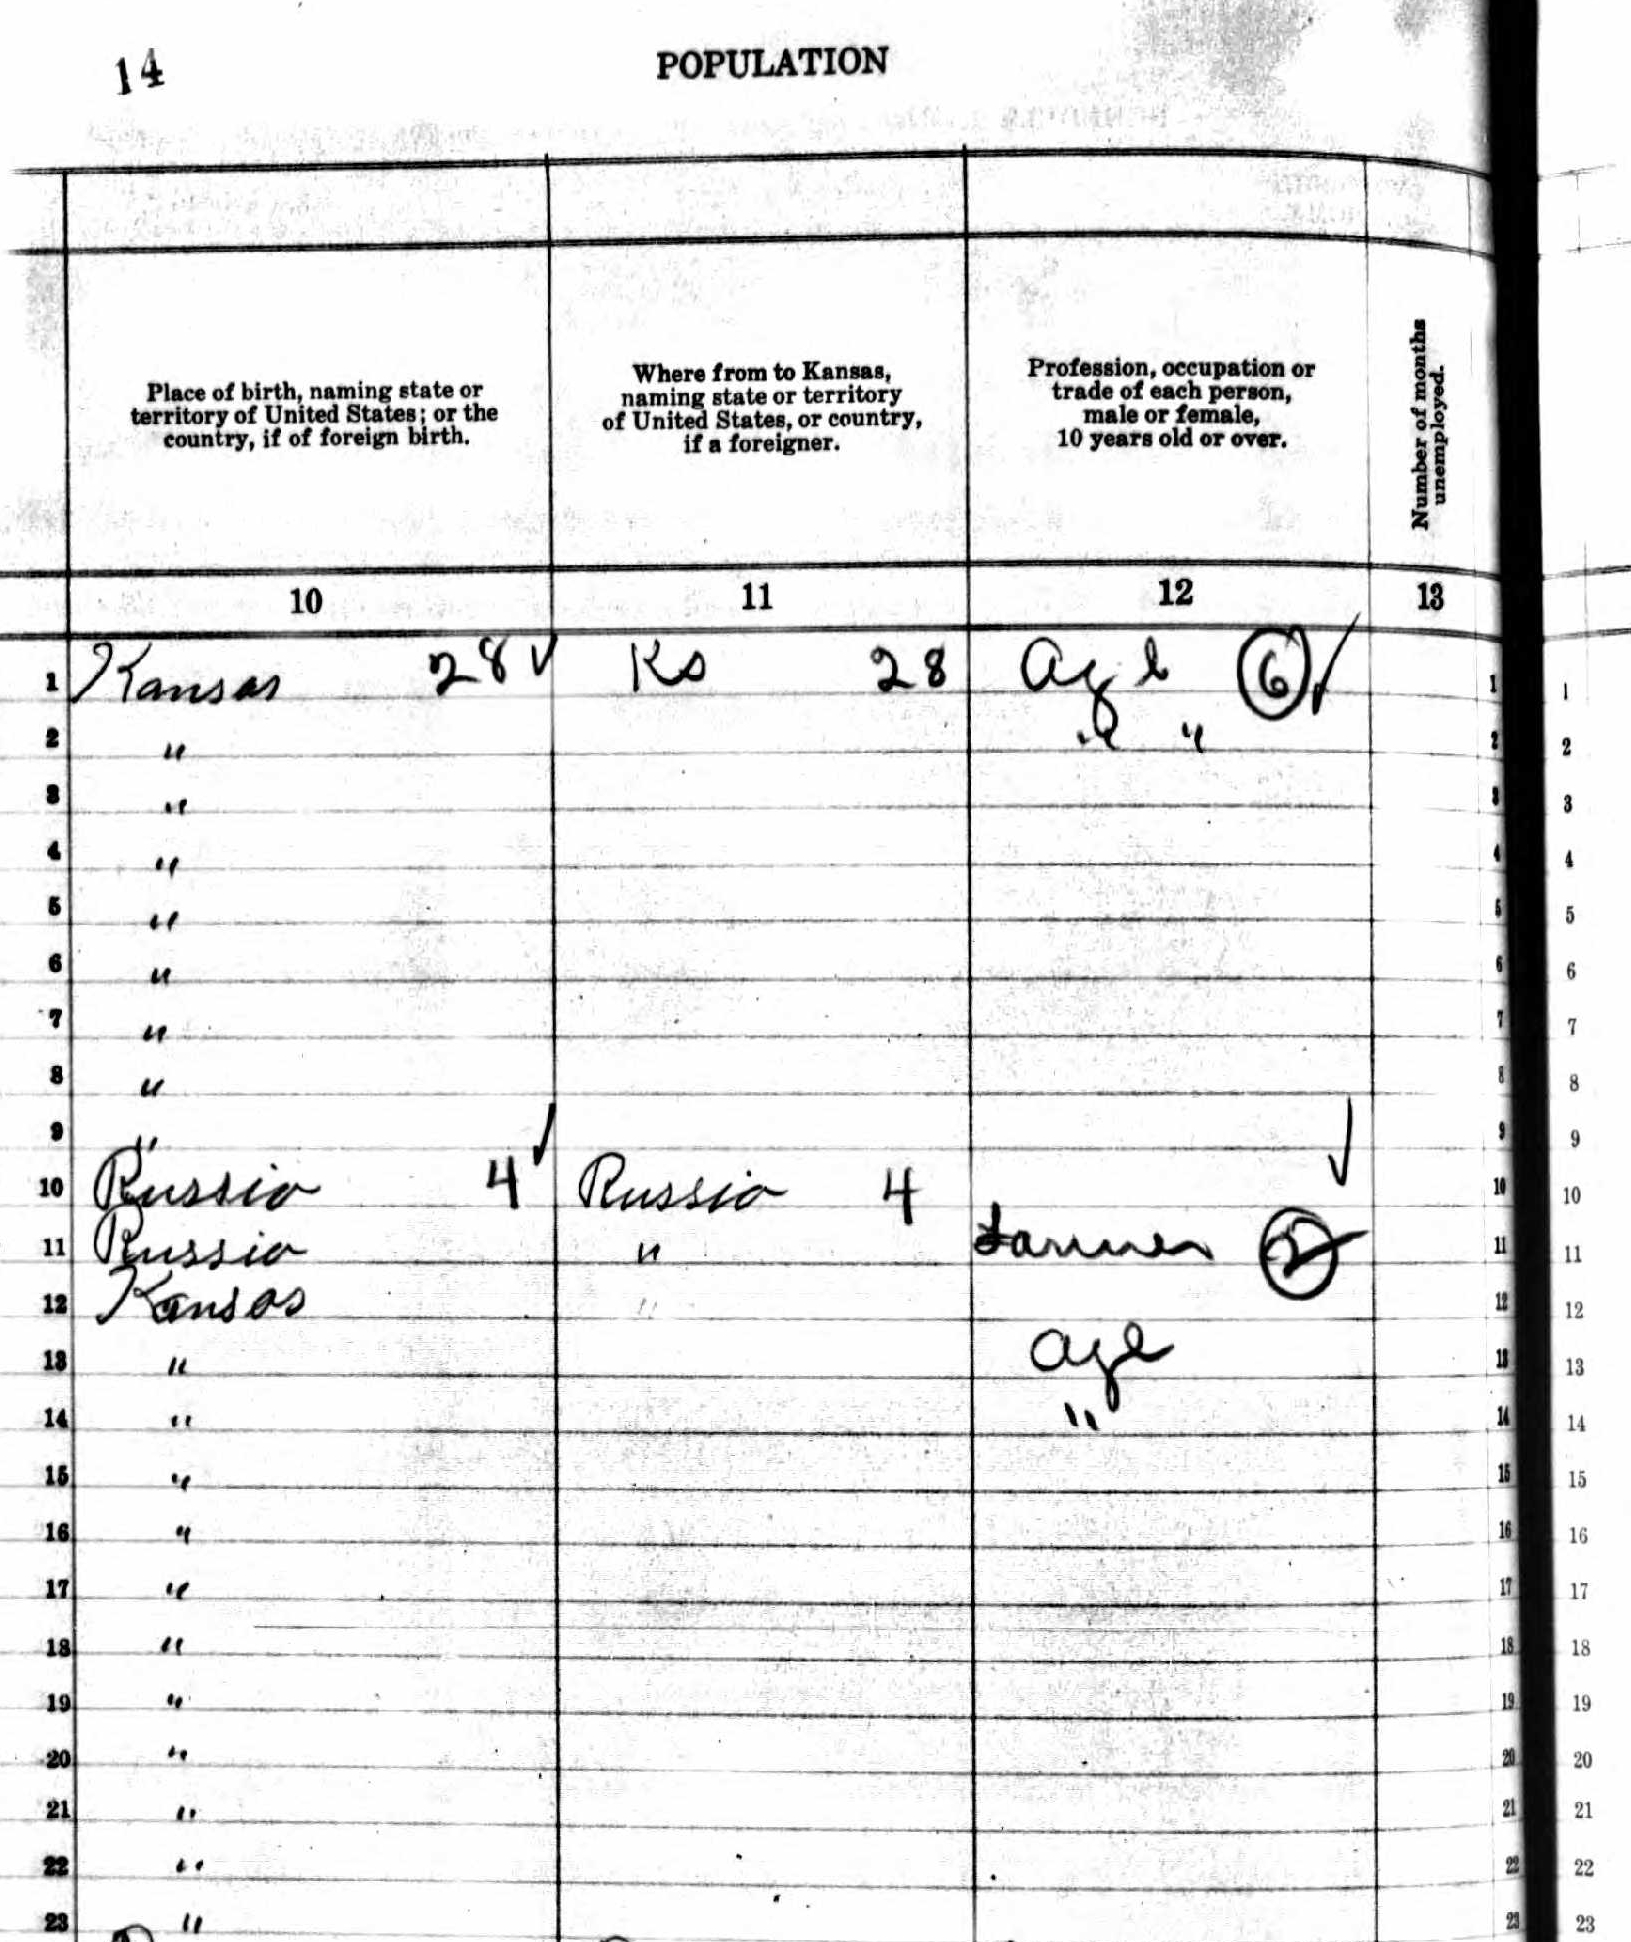 14
POPULATION
Place of birth, naming state or
territory of United States; or the
country, if of foreign birth.
Where from to Kansas,
naming state or territory
of United States, or country,
if a foreigner.
Profession, occupation or
trade of each person,
male or female,
10 years old or over.
Number of months
unemployed.
10 11 12 13
1 Kansas 28 ✓ Ks 28 Ag l 6 ✓ 1 1
2 " " " 2 2
3 " 3 3
4 " 4 4
5 " 5 5
6 " 6 6
7 " 7 7
8 " 8 8
9 " ✓ 9 9
10 Russia 4 Russia 4 ✓ 10 10
11 Russia " Farmer 11 11
12 Kansas " 12 12
13 " Agl 13 13
14 " " 14 14
15 " 15 15
16 " 16 16
17 " 17 17
18 " 18 18
19 " 19 19
20 " 20 20
21 " 21 21
22 " 22 22
23 " 23 23